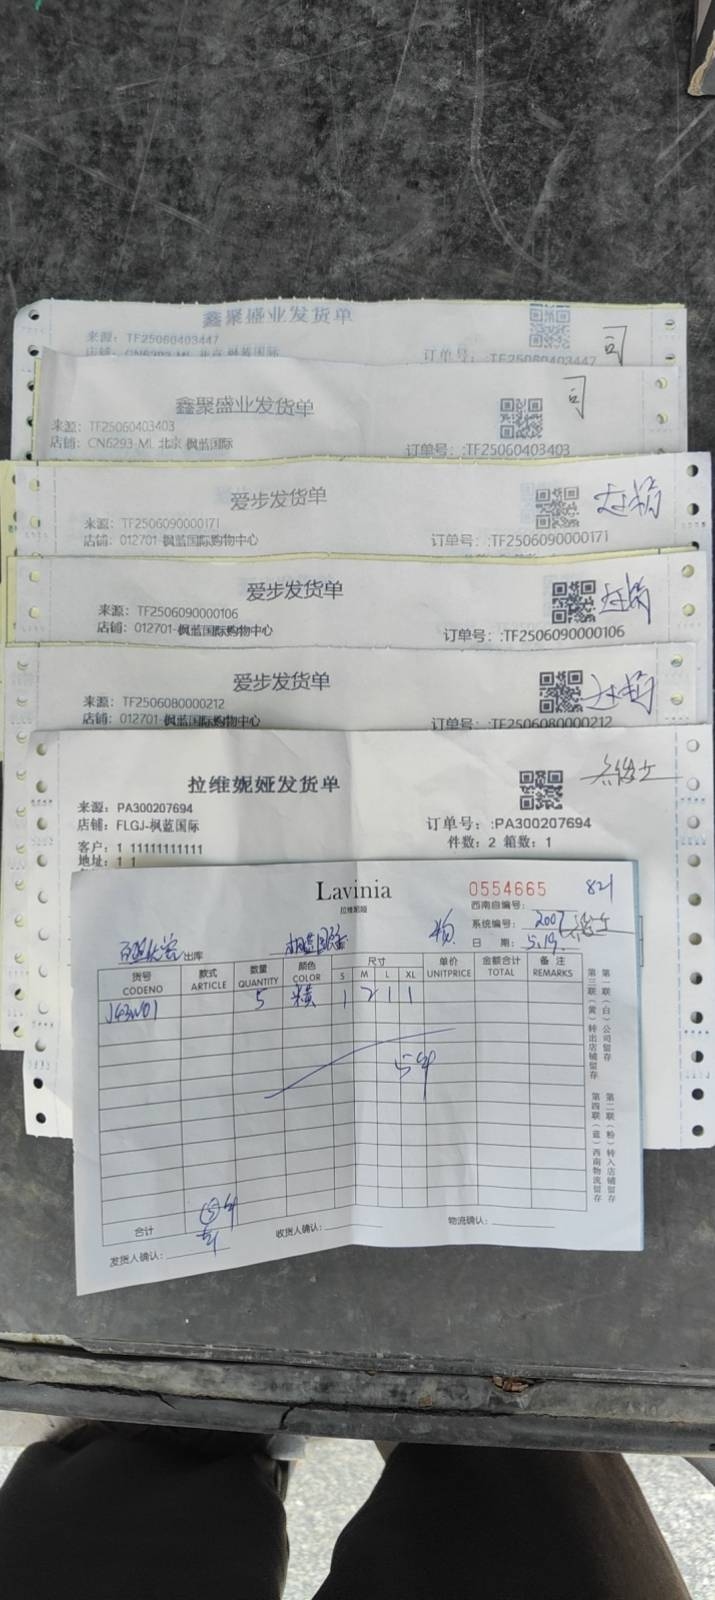 鑫聚盛业发货单
来源：TF25060403447
店铺：CN6293-ML 北京 枫蓝国际
订单号：:TF25060403447
司
鑫聚盛业发货单
司
来源：TF25060403403
店铺：CN6293-ML 北京 枫蓝国际
订单号：:TF25060403403
爱步发货单
来源：TF2506090000171
店铺：012701-枫蓝国际购物中心
订单号：:TF2506090000171
爱步发货单
来源：TF2506090000106
店铺：012701-枫蓝国际购物中心
订单号：:TF2506090000106
爱步发货单
来源：TF2506080000212
店铺：012701-枫蓝国际购物中心
订单号：:TF2506080000212
拉维妮娅发货单
来源：PA300207694
店铺：FLGJ-枫蓝国际
订单号：:PA300207694
客户：1 11111111111
件数：2 箱数：1
地址：1 1
Lavinia
拉维妮娅
0554665
821
西南自编号：
系统编号：2007
日 期：5.19.
出库
枫蓝国际
货号 款式 数量 颜色 尺寸 单价 金额合计 备 注
CODENO ARTICLE QUANTITY COLOR S M L XL UNITPRICE TOTAL REMARKS
J43W01 5 1 2 1 1
5件
合计
⑤件
发货人确认：
收货人确认：
物流确认：
第一联（白）公司留存
第二联（粉）转入店铺留存
第三联（黄）转出店铺留存
第四联（蓝）西南物流留存